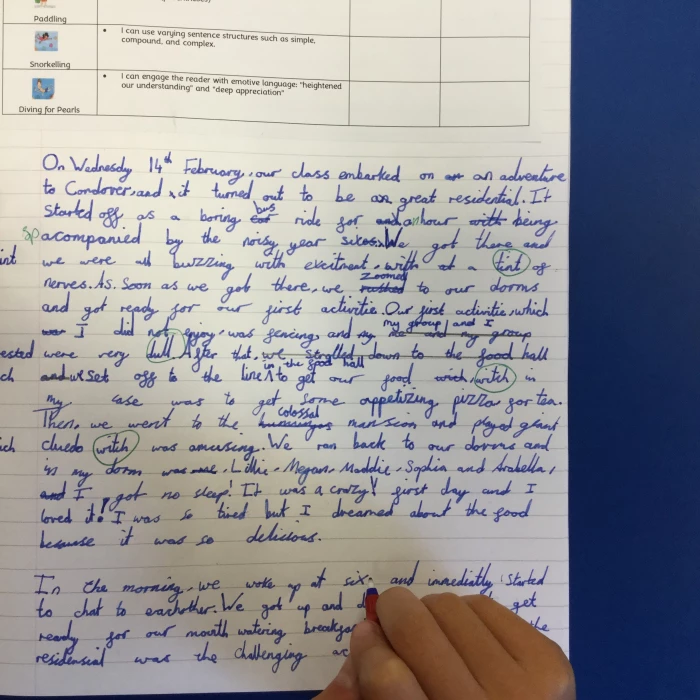 Paddling
• I can use varying sentence structures such as simple, compound, and complex.
Snorkelling
• I can engage the reader with emotive language: "heightened our understanding" and "deep appreciation"
Diving for Pearls
On Wednesday 14th February, our class embarked on an adventure
to Condover, and it turned out to be a great residential. It
started off as a boring bus ride for an hour with being
sp acompanied by the noisy year sixes. We got there and
int we were all buzzing with excitment, with at a tint of
nerves. As soon as we got there, we zoomed to our dorms
and got ready for our first activitie. Our first activitie, which
I did not enjoy, was fencing, and my group and I
ested were very dull. After that, we strolled down to the food hall
ch and set off to the line in the food hall to get our food witch in
my case was to get some appetizing pizza for tea.
Then, we went to the colossal mansion and played giant
ich cluedo witch was amusing. We ran back to our dorms and
in my dorm was Lillie, Megan, Maddie, Sophia and Arabella,
and I got no sleep! It was a crazy first day and I
loved it! I was so tired but I dreamed about the food
because it was so delicious.
In the morning, we woke up at six, and immediatly started
to chat to eachother. We got up and get
ready for our mouth watering the
residensial was the challenging